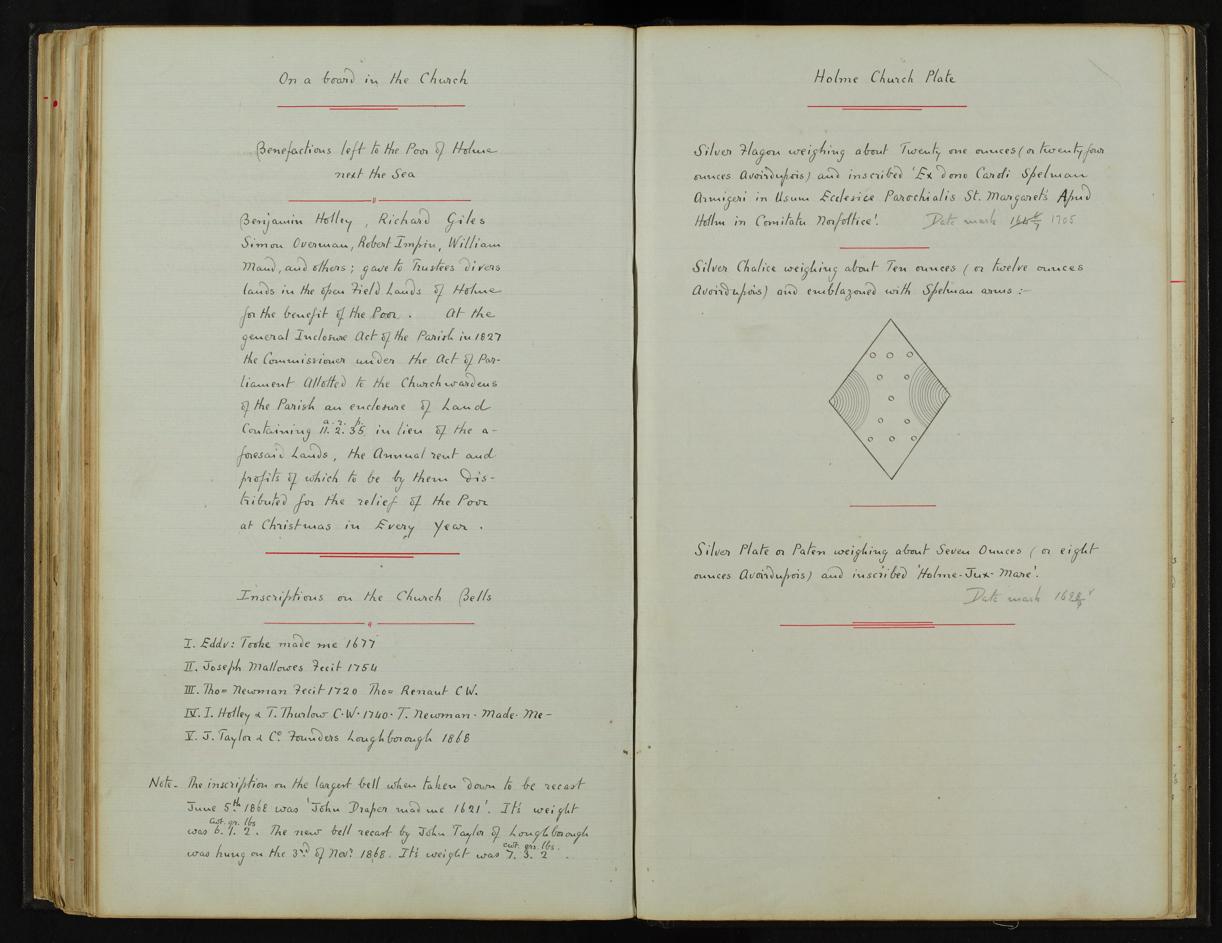 On a board in the Church
Benefactions left to the Poor of Holme
next the Sea
Benjamin Holley, Richard Giles
Simon Overman, Robert Impin, William
Mand, and others; gave to Trustees divers
lands in the open Field Lands of Holme
for the benefit of the Poor. At the
general Inclosure Act of the Parish in 1827
the Commissioner under the Act of Par-
liament Allotted to the Churchwardens
of the Parish an enclosure of Land
a. r. p.
Containing 11. 2. 35 in lieu of the a-
foresaid Lands, the Annual rent and
profits of which to be by them dis-
tributed for the relief of the Poor
at Christmas in Every Year.
Inscriptions on the Church Bells
I. Eddv: Tooke made me 1677
II. Joseph Mallowes Fecit 1754
III. Tho= Newman Fecit 1720 Tho= Renaut C.W.
IV. I. Holley & T. Thurlow C·W·1740· T. Newman· Made· Me-
V. J. Taylor & Co. Founders Loughborough 1868
Note- The inscription on the largest bell when taken down to be recast
June 5th 1868 was 'John Draper mad me 1621'. It's weight
cwt. qr. lbs
was 6. 1. 2. The new bell recast by John Taylor of Loughborough
cwt. qrs. lbs.
was hung on the 3rd of Novr 1868. It's weight was 7. 3. 2.
Holme Church Plate
Silver Flagon weighing about Twenty one ounces (or twenty four
ounces Avoirdupois) and inscribed 'Ex dono Caroli Spelman
Armigeri in Usum Ecclesice Parochialis St. Margarets Apud
Hollm in Comitatu Norfoltice'. Date mark 1705
Silver Chalice weighing about Ten ounces (or twelve ounces
Avoirdupois) and emblazoned with Spelman arms :-
Silver Plate or Paten weighing about Seven Ounces (or eight
ounces Avoirdupois) and inscribed 'Holme-Jux-Mare'.
Date mark